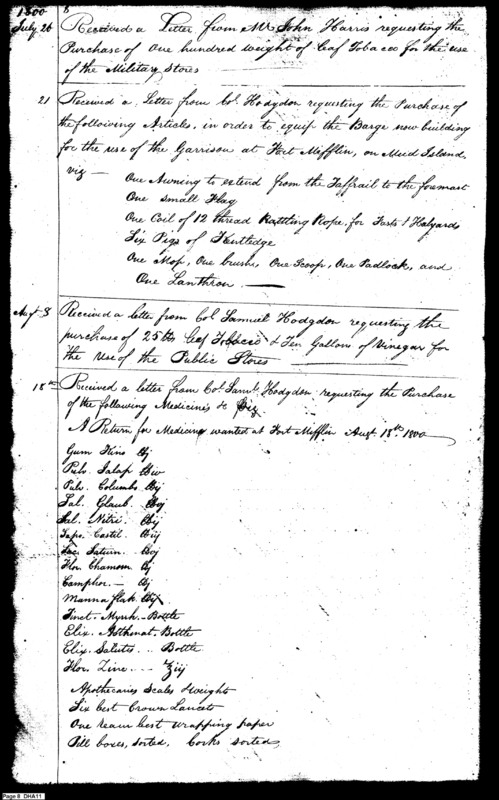 1800
8
July 26 Received a Letter from Mr. John Harris requesting the
Purchase of One hundred weight of Leaf Tobacco for the use
of the Military Stores
21 Received a Letter from Col. Hodgdon requesting the Purchase of
the following Articles, in order to equip the Barge now building
for the use of the Garrison at Fort Mifflin, on Mud Island
viz —
One Awning to extend from the Taffrail to the foremast
One small Flag
One Coil of 12 thread Rattling Rope, for Fasts & Halyards
Six Pigs of Kentledge
One Mop, One brush, One Scoop, One Padlock, and
One Lanthron. —
Augt. 8 Received a letter from Col Samuel Hodgdon requesting the
purchase of 25 lbs Leaf Tobacco & Ten Gallons of Vinegar for
the Use of the Public Stores
18th Received a letter from Col. Saml. Hodgdon requesting the Purchase
of the following Medicines &c Viz
A Return for Medicine wanted at Fort Mifflin Augt. 18th. 1800
Gum Kino
Pulv. Jalap
Pulv. Columbo
Sal. Glaub.
Sal. Nitri.
Sapo. Castil.
Sac. Saturn.
Flor. Chamom.
Camphor. —
Manna flak
Tinct. Myrrh. - Bottle
Elix. Asthmat. Bottle
Elix. Salutis .. Bottle
Flor. Zinc. ...
Apothecaries Scales & Weight
Six best Crown Lancets
One ream best wrapping paper
Pill boxes, sorted, Corks sorted
Page 8 DHA11